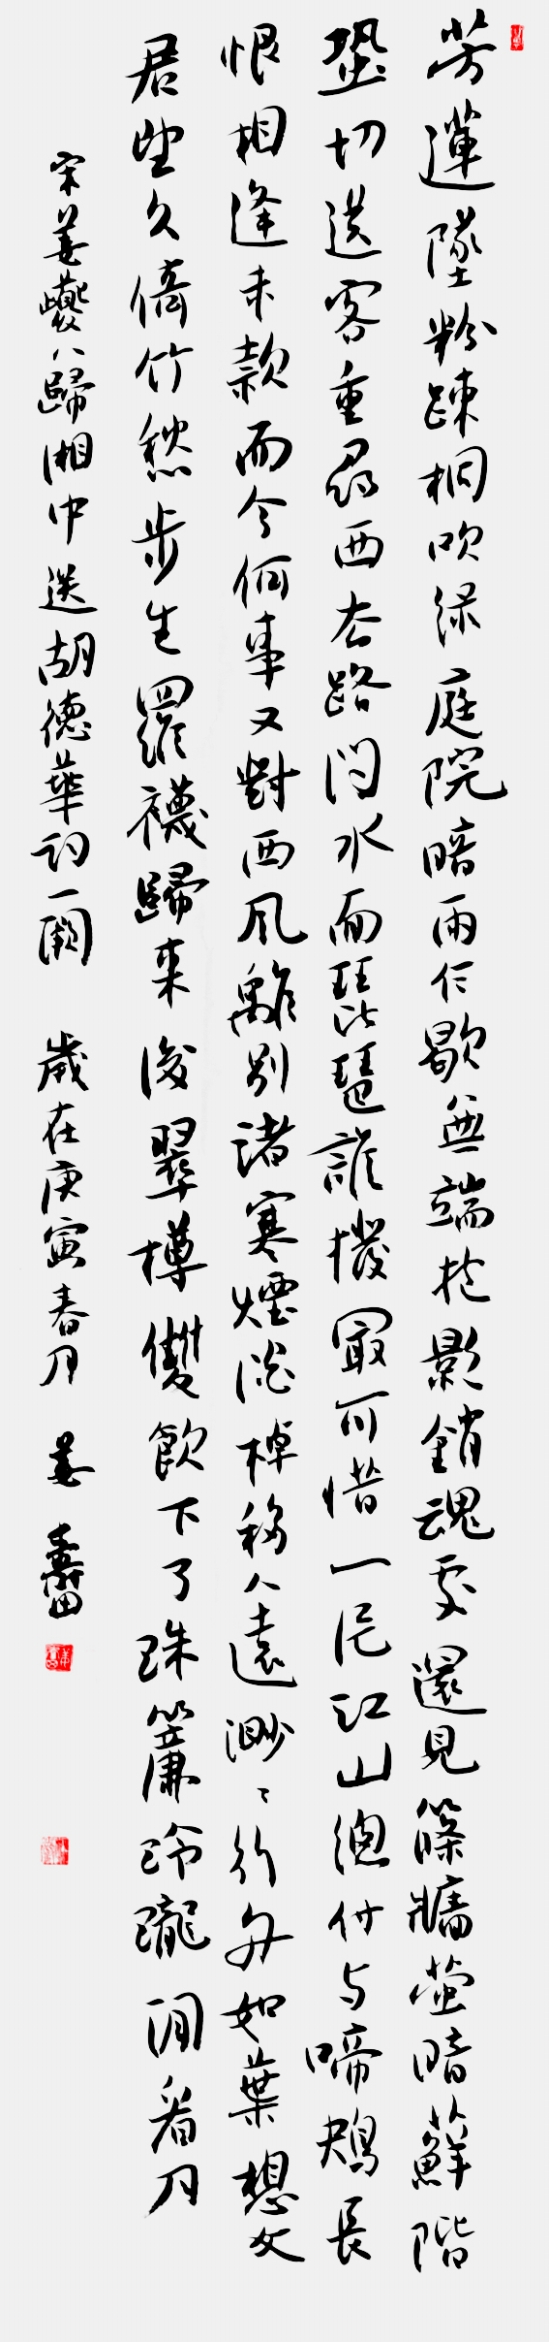 芳蓮墜粉疎桐吹綠庭院暗雨乍歇無端抱影銷魂處還見篠牆螢暗蘚階
蛩切送客重尋西去路問水面琵琶誰撥最可惜一片江山總付与啼鴂長
恨相逢未款而今何事又對西風離別渚寒煙淡棹移人遠渺〻行舟如葉想文
君望久倚竹愁步生羅襪歸来後翠樽雙飲下了珠簾玲瓏閒看月
宋姜夔八歸湘中送胡德華詞一闋 歲在庚寅春月 姜壽田